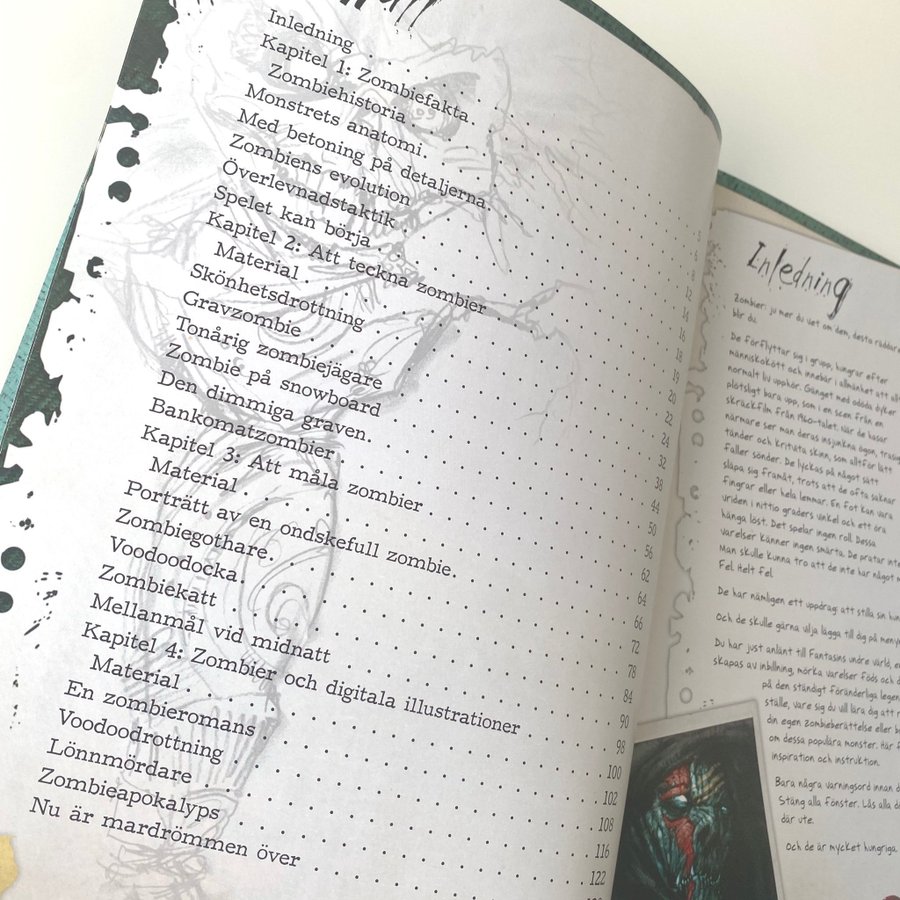 Inledning . . . . 5
Kapitel 1: Zombiefakta . . . . 6
Zombiehistoria . . . . 8
Monstrets anatomi . . . . 12
Med betoning på detaljerna . . . . 14
Zombiens evolution . . . . 16
Överlevnadstaktik . . . . 18
Spelet kan börja . . . . 19
Kapitel 2: Att teckna zombier . . . . 20
Material . . . . 22
Skönhetsdrottning . . . . 24
Gravzombie . . . . 32
Tonårig zombiejägare . . . . 38
Zombie på snowboard . . . . 44
Den dimmiga graven . . . . 50
Bankomatzombier . . . . 56
Kapitel 3: Att måla zombier . . . . 62
Material . . . . 64
Porträtt av en ondskefull zombie . . . . 66
Zombiegothare . . . . 72
Voodoodocka . . . . 78
Zombiekatt . . . . 84
Mellanmål vid midnatt . . . . 90
Kapitel 4: Zombier och digitala illustrationer . . . . 98
Material . . . . 100
En zombieromans . . . . 102
Voodoodrottning . . . . 108
Lönnmördare . . . . 116
Zombieapokalyps . . . . 122
Nu är mardrömmen över . . . .
Inledning
Zombier: ju mer du vet om dem, desto räddare
blir du.
De förflyttar sig i grupp, hungrar efter
människokött och innebär i allmänhet att allt
normalt liv upphör. Gänget med odöda dyker
plötsligt bara upp, som i en scen från en
skräckfilm från 1960-talet. När de hasar
närmare ser man deras insjunkna ögon, trasiga
tänder och kritvita skinn, som alltför lätt
faller sönder. De lyckas på något sätt
släpa sig framåt, trots att de ofta saknar
fingrar eller hela lemmar. En fot kan vara
vriden i nittio graders vinkel och ett öra
hänga löst. Det spelar ingen roll. Dessa
varelser känner ingen smärta. De pratar inte
Man skulle kunna tro att de inte har något
Fel. Helt fel.
De har nämligen ett uppdrag: att stilla sin
Och de skulle gärna vilja lägga till dig på
Du har just anlänt till Fantasins undre värld,
skapas av inbillning, mörka varelser föds och
på den ständigt föränderliga
ställe, vare sig du vill lära dig att
din egen zombieberättelse eller
om dessa populära monster. Här
inspiration och instruktion.
Bara några varningsord innan
Stäng alla fönster. Lås alla
där ute.
Och de är mycket hungriga.